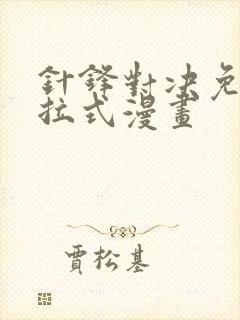 針鋒對決免
拉式漫畫
賈松基